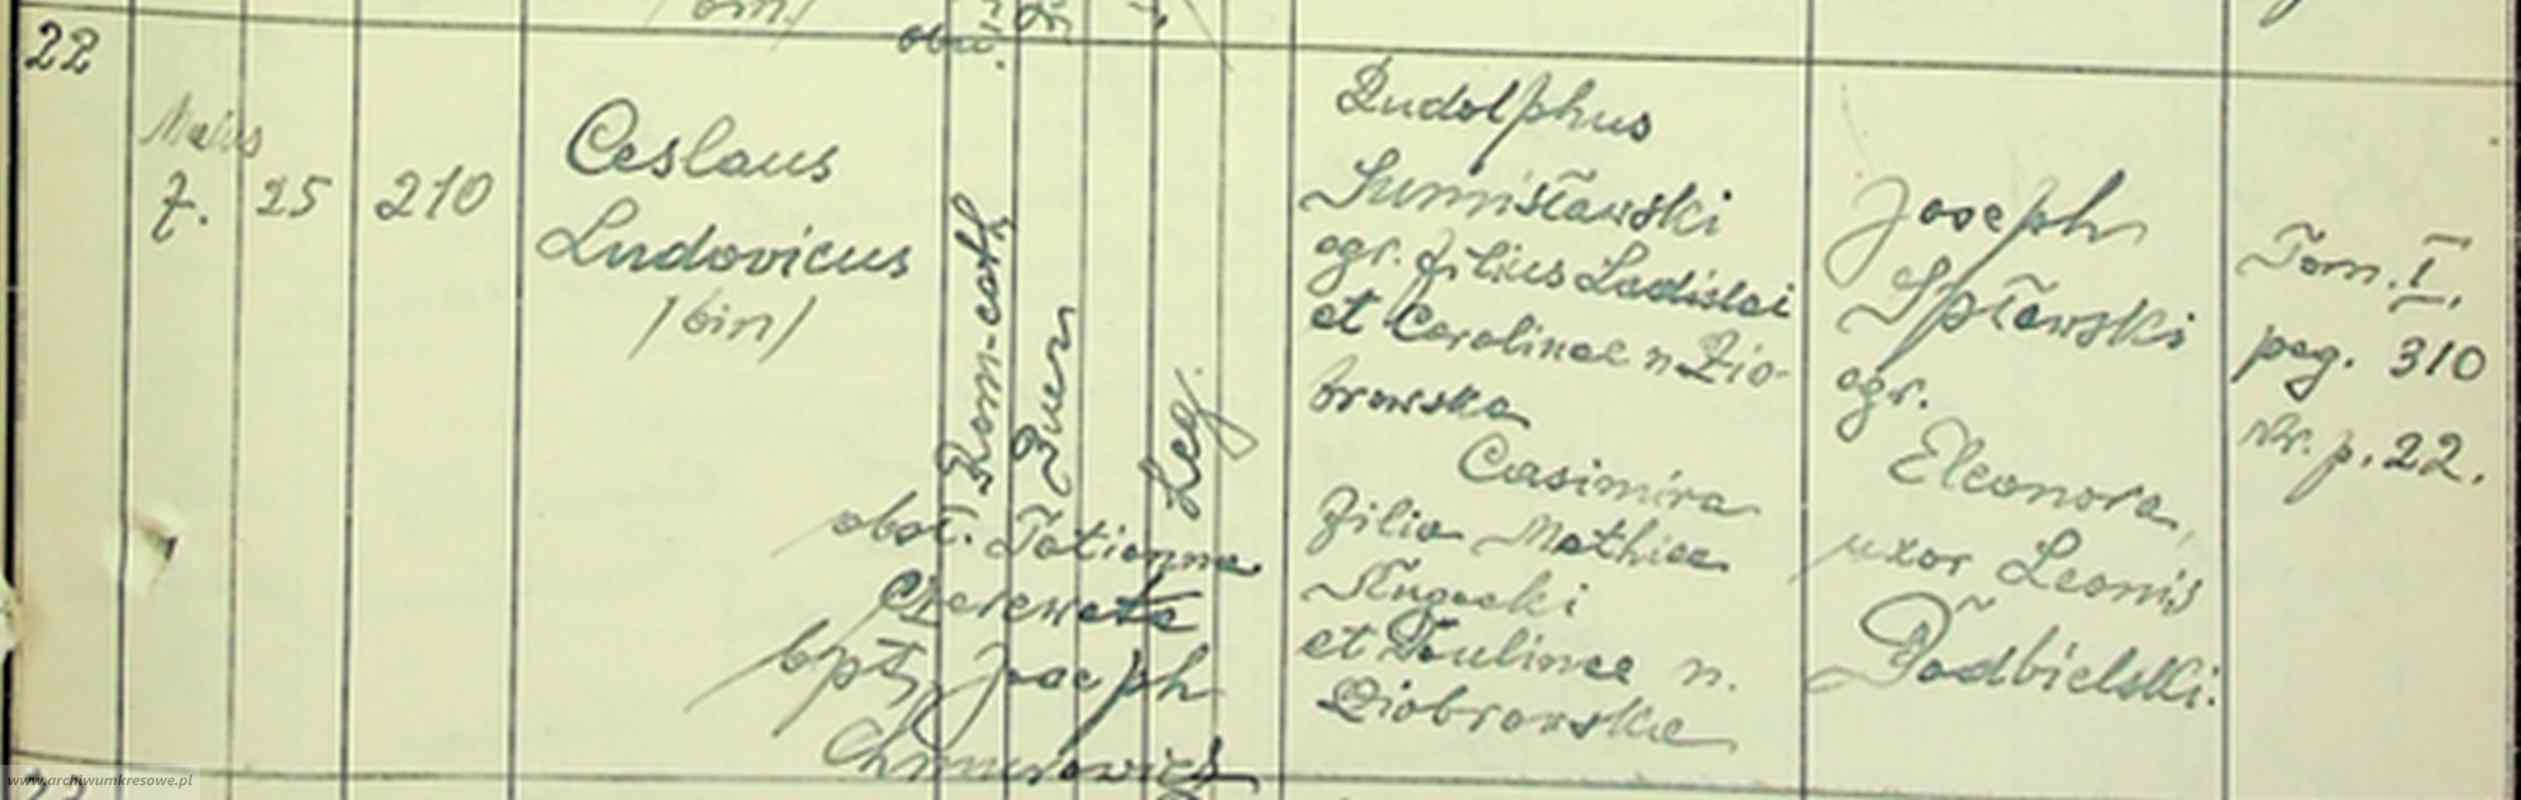 22
Maius
7. 25 210
Ceslaus
Ludovicus
/bin/
Rom-cath
Puer
Leg.
obst. Tatianna
bpt. Joseph
Rudolphus
agr. filius Ladislai
et Carolinae n Zio-
browska
Casimira
filia Mathiae
et Paulinae n.
Ziobrowska
Joseph
Spławski
agr.
Eleonora,
uxor Leonis
Podbielski.
Tom. I.
pag. 310
Nr. p. 22.
www.archiwumkresowe.pl